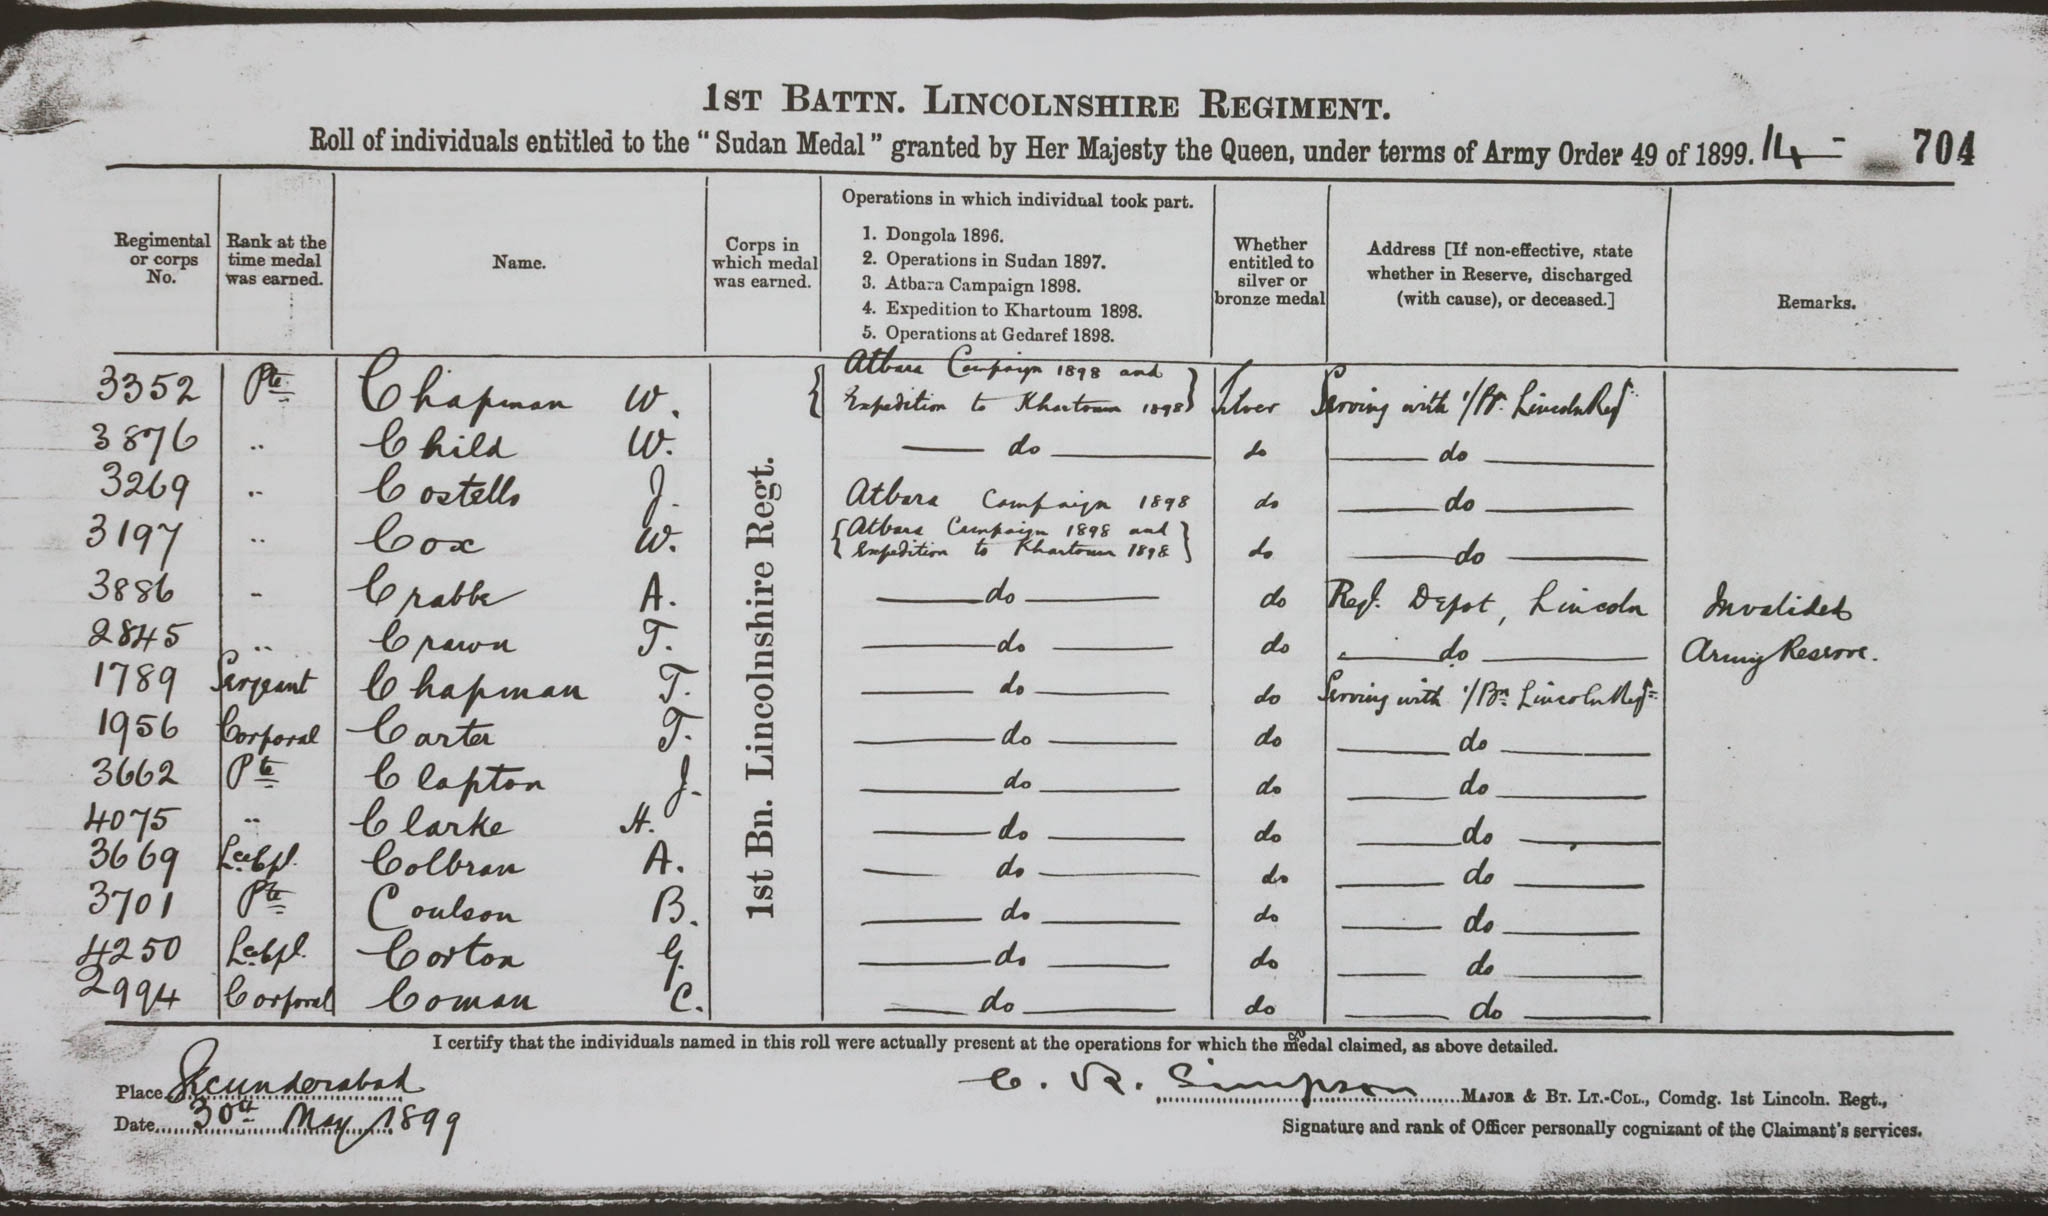 1ST BATTN. LINCOLNSHIRE REGIMENT.
Roll of individuals entitled to the "Sudan Medal" granted by Her Majesty the Queen, under terms of Army Order 49 of 1899. 14 704
Regimental or corps No.
Rank at the time medal was earned.
Name.
Corps in which medal was earned.
Operations in which individual took part.
1. Dongola 1896.
2. Operations in Sudan 1897.
3. Atbara Campaign 1898.
4. Expedition to Khartoum 1898.
5. Operations at Gedaref 1898.
Whether entitled to silver or bronze medal
Address [If non-effective, state whether in Reserve, discharged (with cause), or deceased.]
Remarks.
1st Bn. Lincolnshire Regt.
3352 Pte Chapman W. {Atbara Campaign 1898 and Expedition to Khartoum 1898} Silver Serving with 1/Bn. Lincoln Regt.
3876 " Child W. do do do
3269 " Costello J. Atbara Campaign 1898 do do
3197 " Cox W. {Atbara Campaign 1898 and Expedition to Khartoum 1898} do do
3886 " Crabbe A. do do Regt. Depot, Lincoln Invalided
2845 " Crawn T. do do do Army Reserve.
1789 Sergeant Chapman T. do do Serving with 1/Bn Lincoln Regt
1956 Corporal Carter T. do do do
3662 Pte Clapton J. do do do
4075 " Clarke H. do do do
3669 Lce Cpl. Colbran A. do do do
3701 Pte Coulson B. do do do
4250 Lce Cpl. Corton G. do do do
2994 Corporal Coman C. do do do
I certify that the individuals named in this roll were actually present at the operations for which the medal claimed, as above detailed.
Place Secunderabad
Date 30th May 1899
C. R. Simpson MAJOR & BT. LT.-COL., Comdg. 1st Lincoln. Regt.,
Signature and rank of Officer personally cognizant of the Claimant's services.